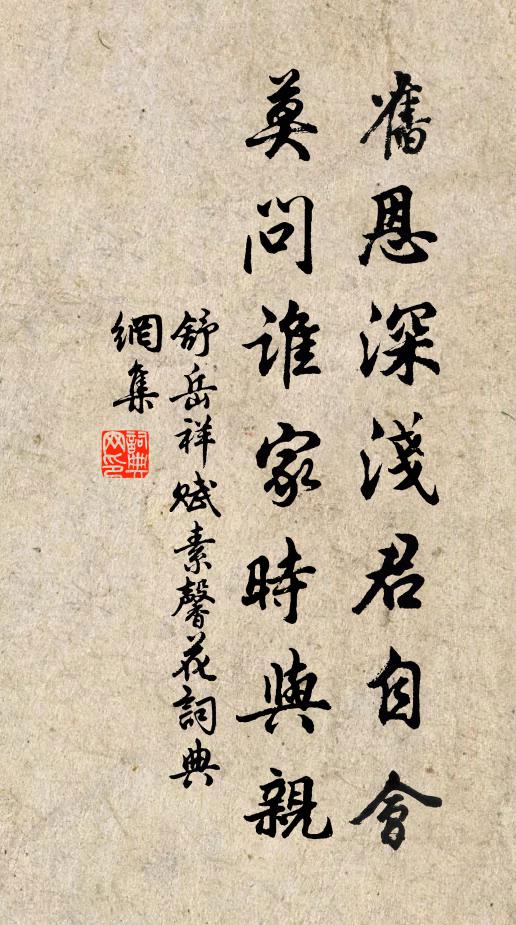 舊恩深淺君自會
莫問誰家時與親
舒岳祥賦素馨花詞典
網集
詞典網印